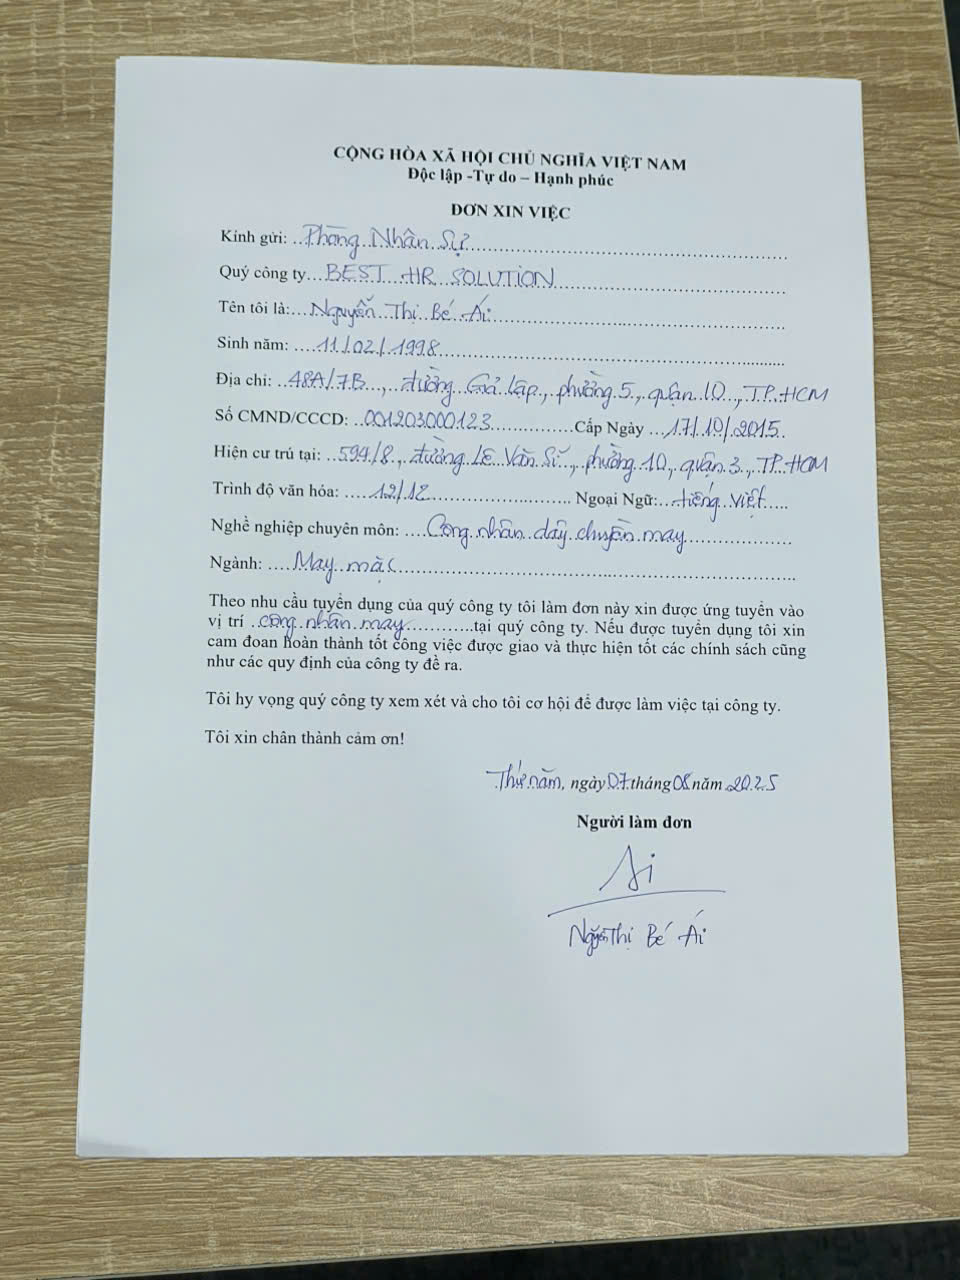 CỘNG HÒA XÃ HỘI CHỦ NGHĨA VIỆT NAM
Độc lập -Tự do – Hạnh phúc
ĐƠN XIN VIỆC
Kính gửi: Phòng Nhân Sự
Quý công ty BEST HR SOLUTION
Tên tôi là: Nguyễn Thị Bé Ái
Sinh năm: 11/02/1998
Địa chỉ: 48A/7B, đường Giả lập, phường 5, quận 10, TP.HCM
Số CMND/CCCD: 001203000123 Cấp Ngày 17/10/2015
Hiện cư trú tại: 594/8, đường Lê Văn Sĩ, phường 10, quận 3, TP HCM
Trình độ văn hóa: 12/12 Ngoại Ngữ: tiếng việt
Nghề nghiệp chuyên môn: Công nhân dây chuyền may
Ngành: May mặc
Theo nhu cầu tuyển dụng của quý công ty tôi làm đơn này xin được ứng tuyển vào
vị trí công nhân may tại quý công ty. Nếu được tuyển dụng tôi xin
cam đoan hoàn thành tốt công việc được giao và thực hiện tốt các chính sách cũng
như các quy định của công ty đề ra.
Tôi hy vọng quý công ty xem xét và cho tôi cơ hội để được làm việc tại công ty.
Tôi xin chân thành cảm ơn!
Thứ năm, ngày 07 tháng 08 năm 2025
Người làm đơn
Ái
Nguyễn Thị Bé Ái